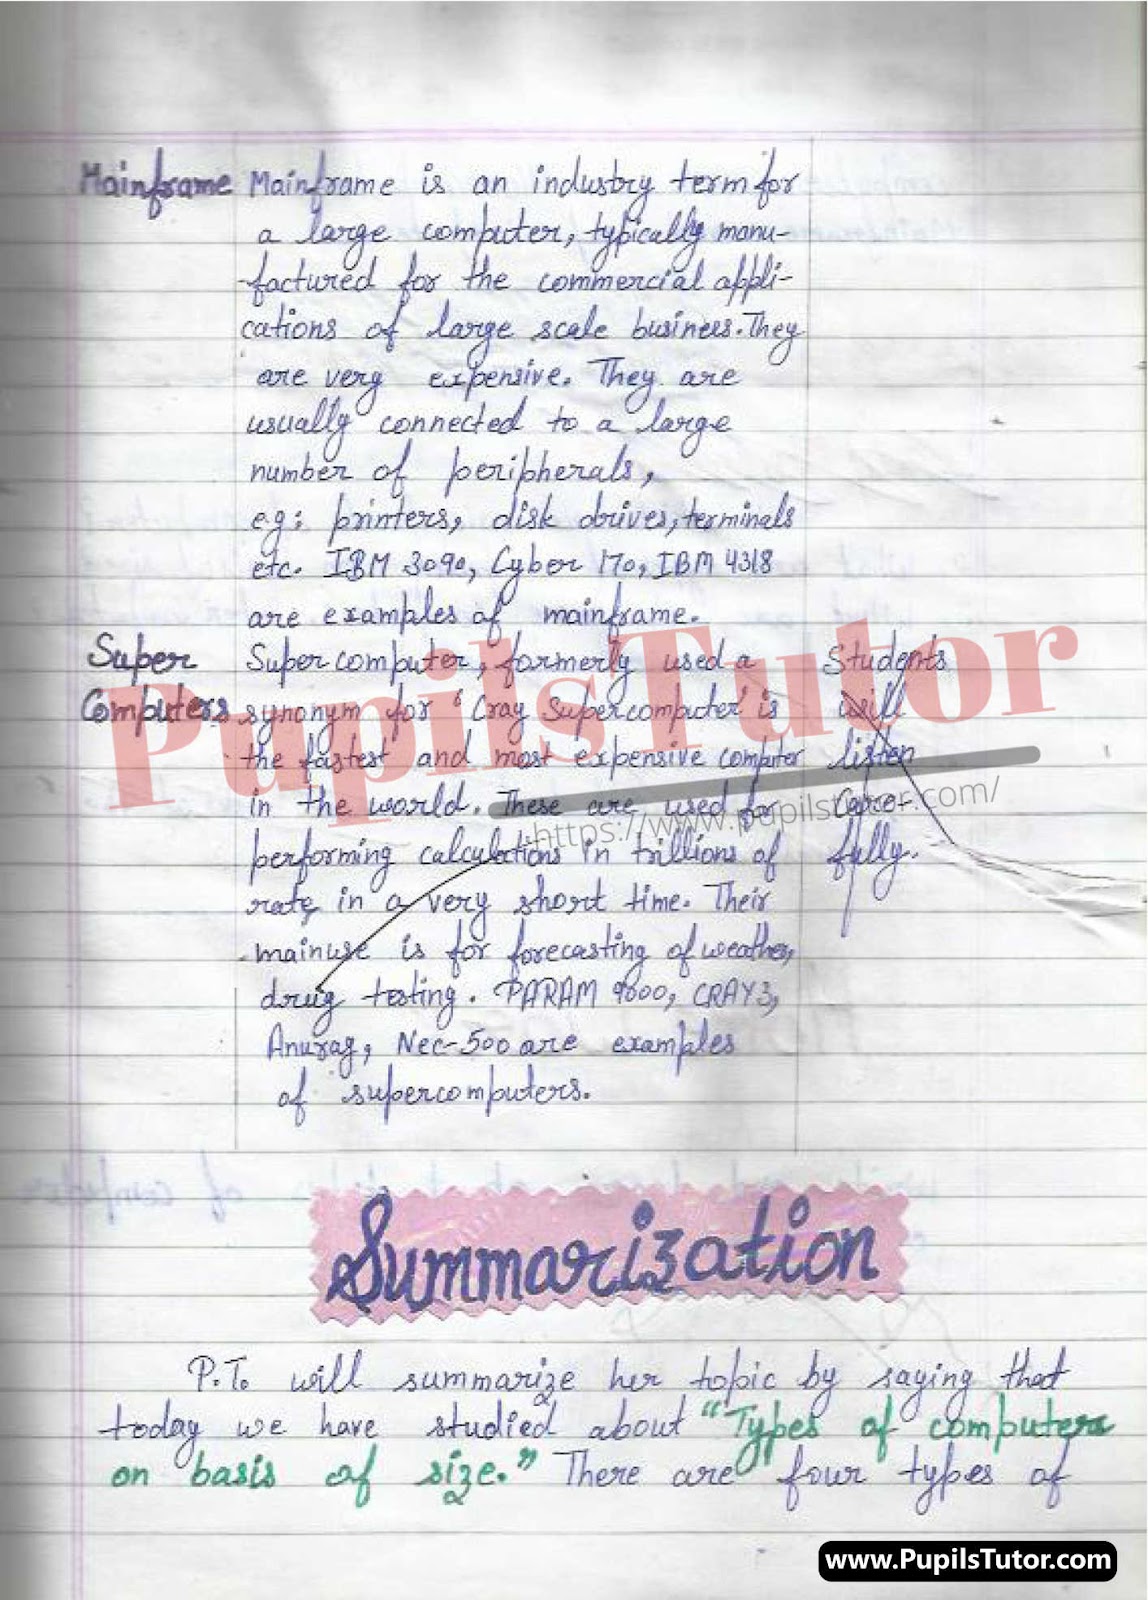 Mainframe Mainframe is an industry term for
a large computer, typically manu-
-factured for the commercial appli-
cations of large scale business. They
are very expensive. They are
usually connected to a large
number of peripherals,
eg: printers, disk drives, terminals
etc. IBM 3090, Cyber 170, IBM 4318
are examples of mainframe.
Super Supercomputer, formerly used a Students
Computers synonym for 'Cray Supercomputer' is will
the fastest and most expensive computer listen
in the world. These are used for care-
performing calculations in trillions of fully.
rate in a very short time. Their
mainuse is for forecasting of weather,
drug testing. PARAM 9000, CRAY3,
Anurag, Nec-500 are examples
of supercomputers.
PupilsTutor
https://www.pupilstutor.com/
Summarization
P.T. will summarize her topic by saying that
today we have studied about "Types of computers
on basis of size." There are four types of
www.PupilsTutor.com